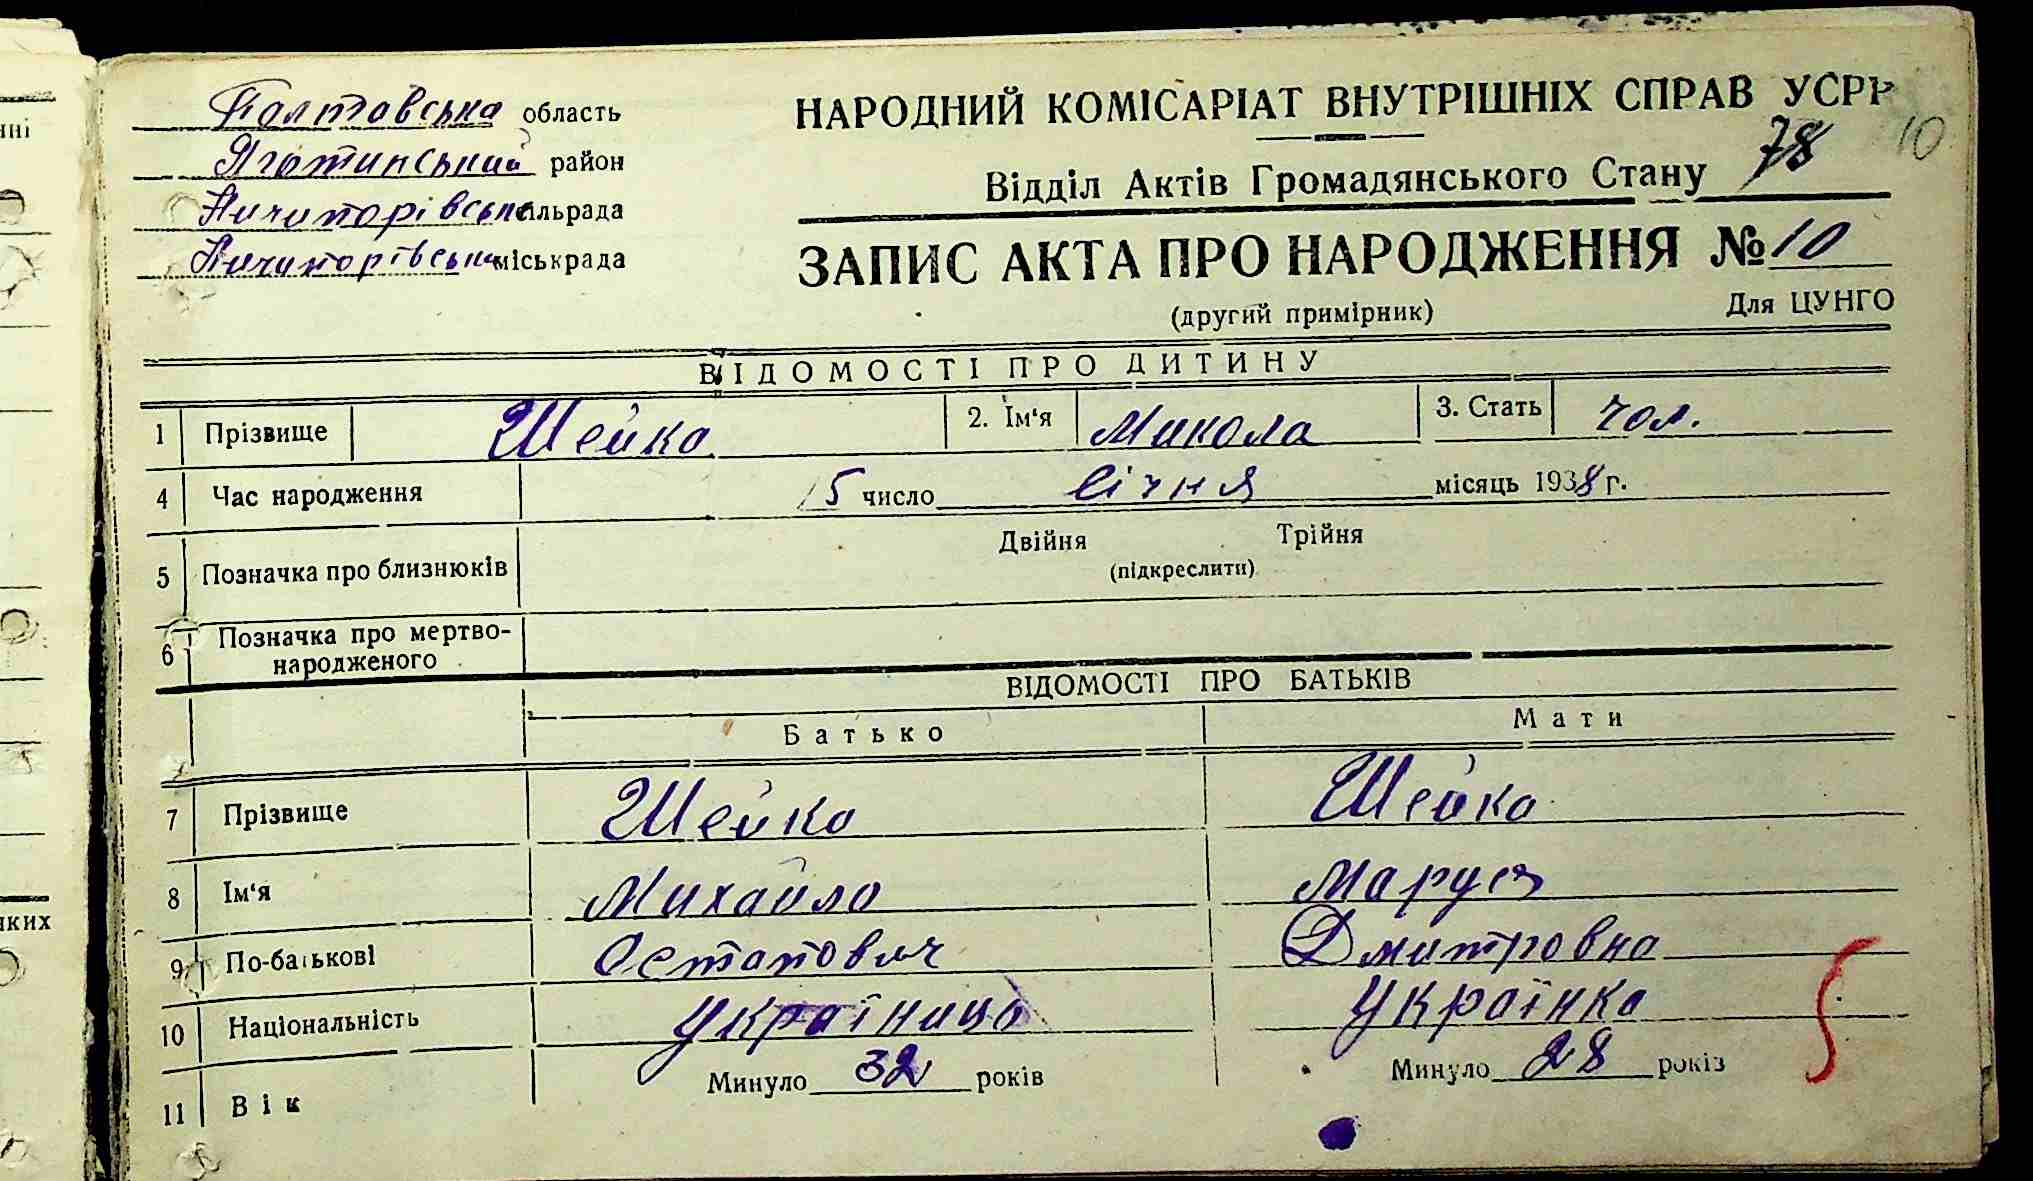 Полтавська область
Яготинський район
Ничипорівська сільрада
Ничипорівська міськрада
НАРОДНИЙ КОМІСАРІАТ ВНУТРІШНІХ СПРАВ УСРР
10
Відділ Актів Громадянського Стану 78
ЗАПИС АКТА ПРО НАРОДЖЕННЯ № 10
(другий примірник) Для ЦУНГО
ВІДОМОСТІ ПРО ДИТИНУ
1 Прізвище Шейко 2. Ім‘я Микола 3. Стать чол.
4 Час народження 5 число січня місяць 1938 г.
5 Позначка про близнюків Двійня Трійня
(підкреслити)
6 Позначка про мертво-
народженого
ВІДОМОСТІ ПРО БАТЬКІВ
Батько Мати
7 Прізвище Шейко Шейко
8 Ім‘я Михайло Маруся
9 По-батькові Остапович Дмитровна
10 Національність Україниць Українка
11 Вік Минуло 32 років Минуло 28 років
нні
яких